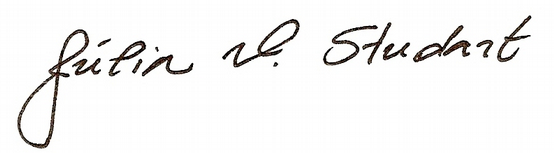 Júlia V. Studart